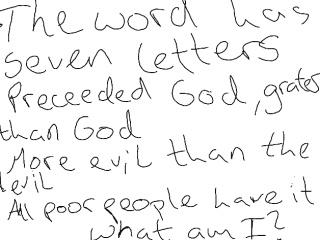 The word has
seven letters
Preceeded God, grater
than God
More evil than the
devil
All poor people have it
what am I?